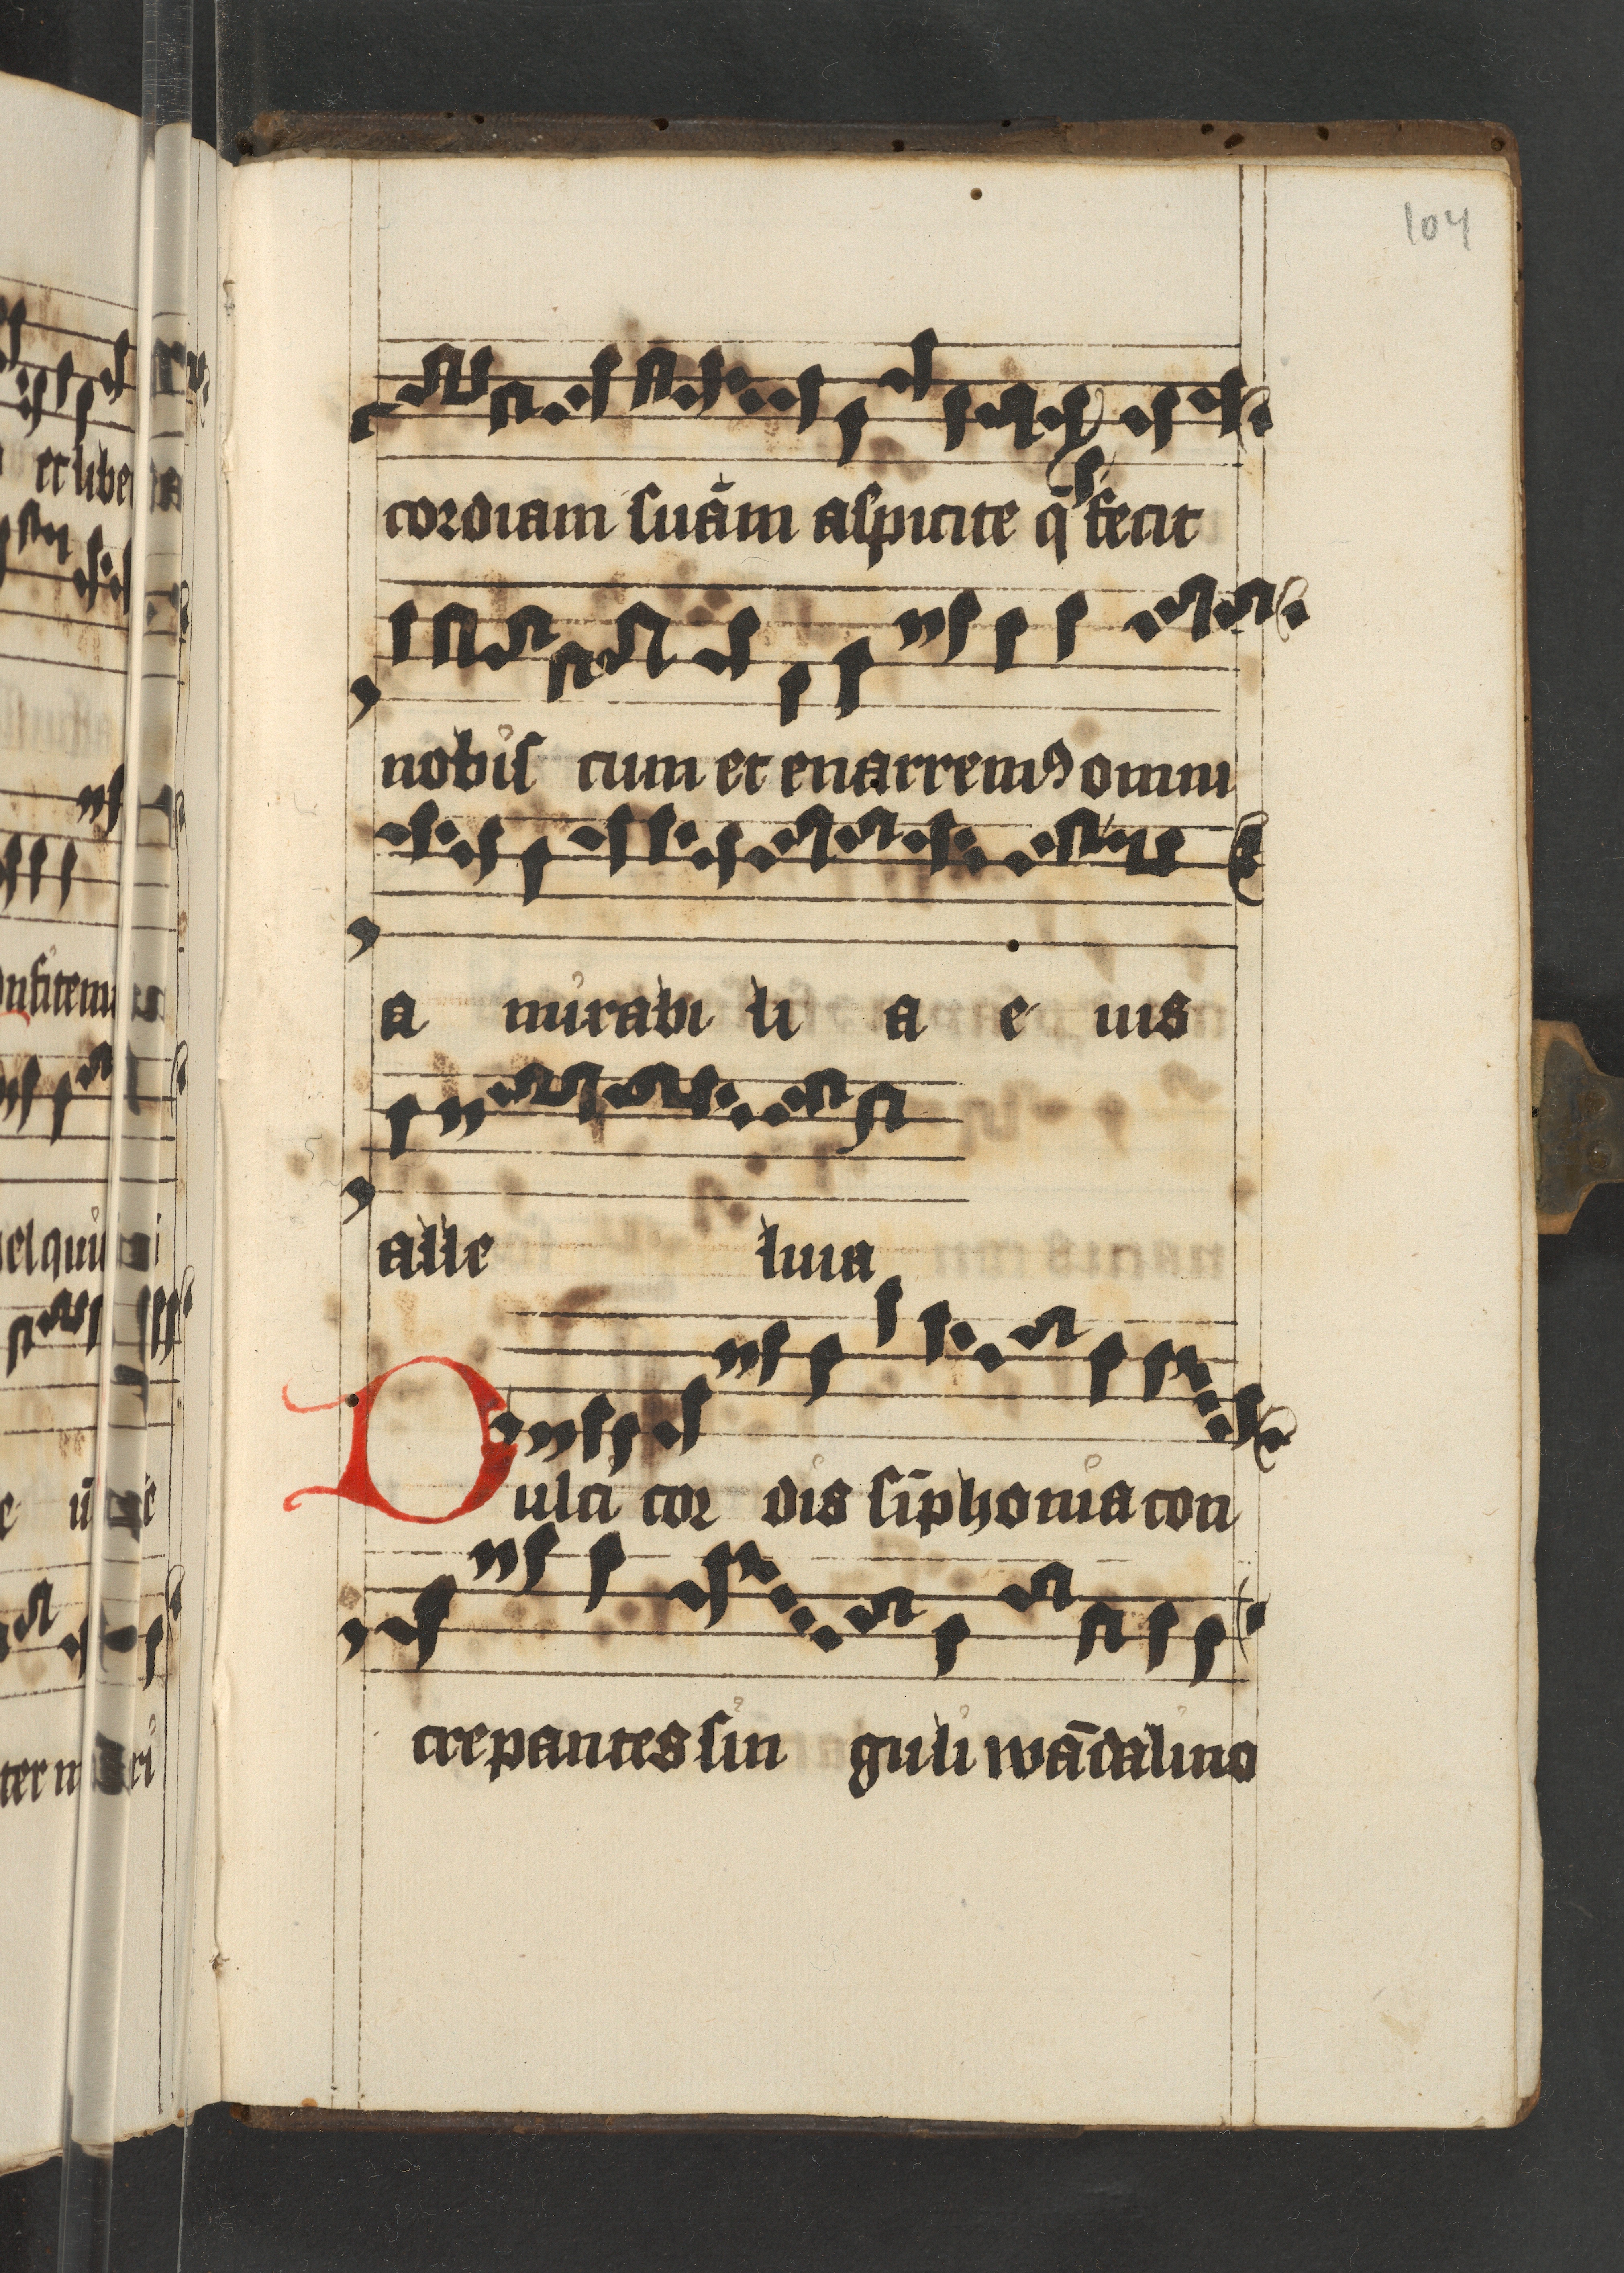 104
cordiam suam aspicite q̄ fecit
nobis cum et enarremꝰ omni
a mirabi li a e ius
alle luia
Dulci cor dis simphonia con
crepantes sin guli wādalino
et libe